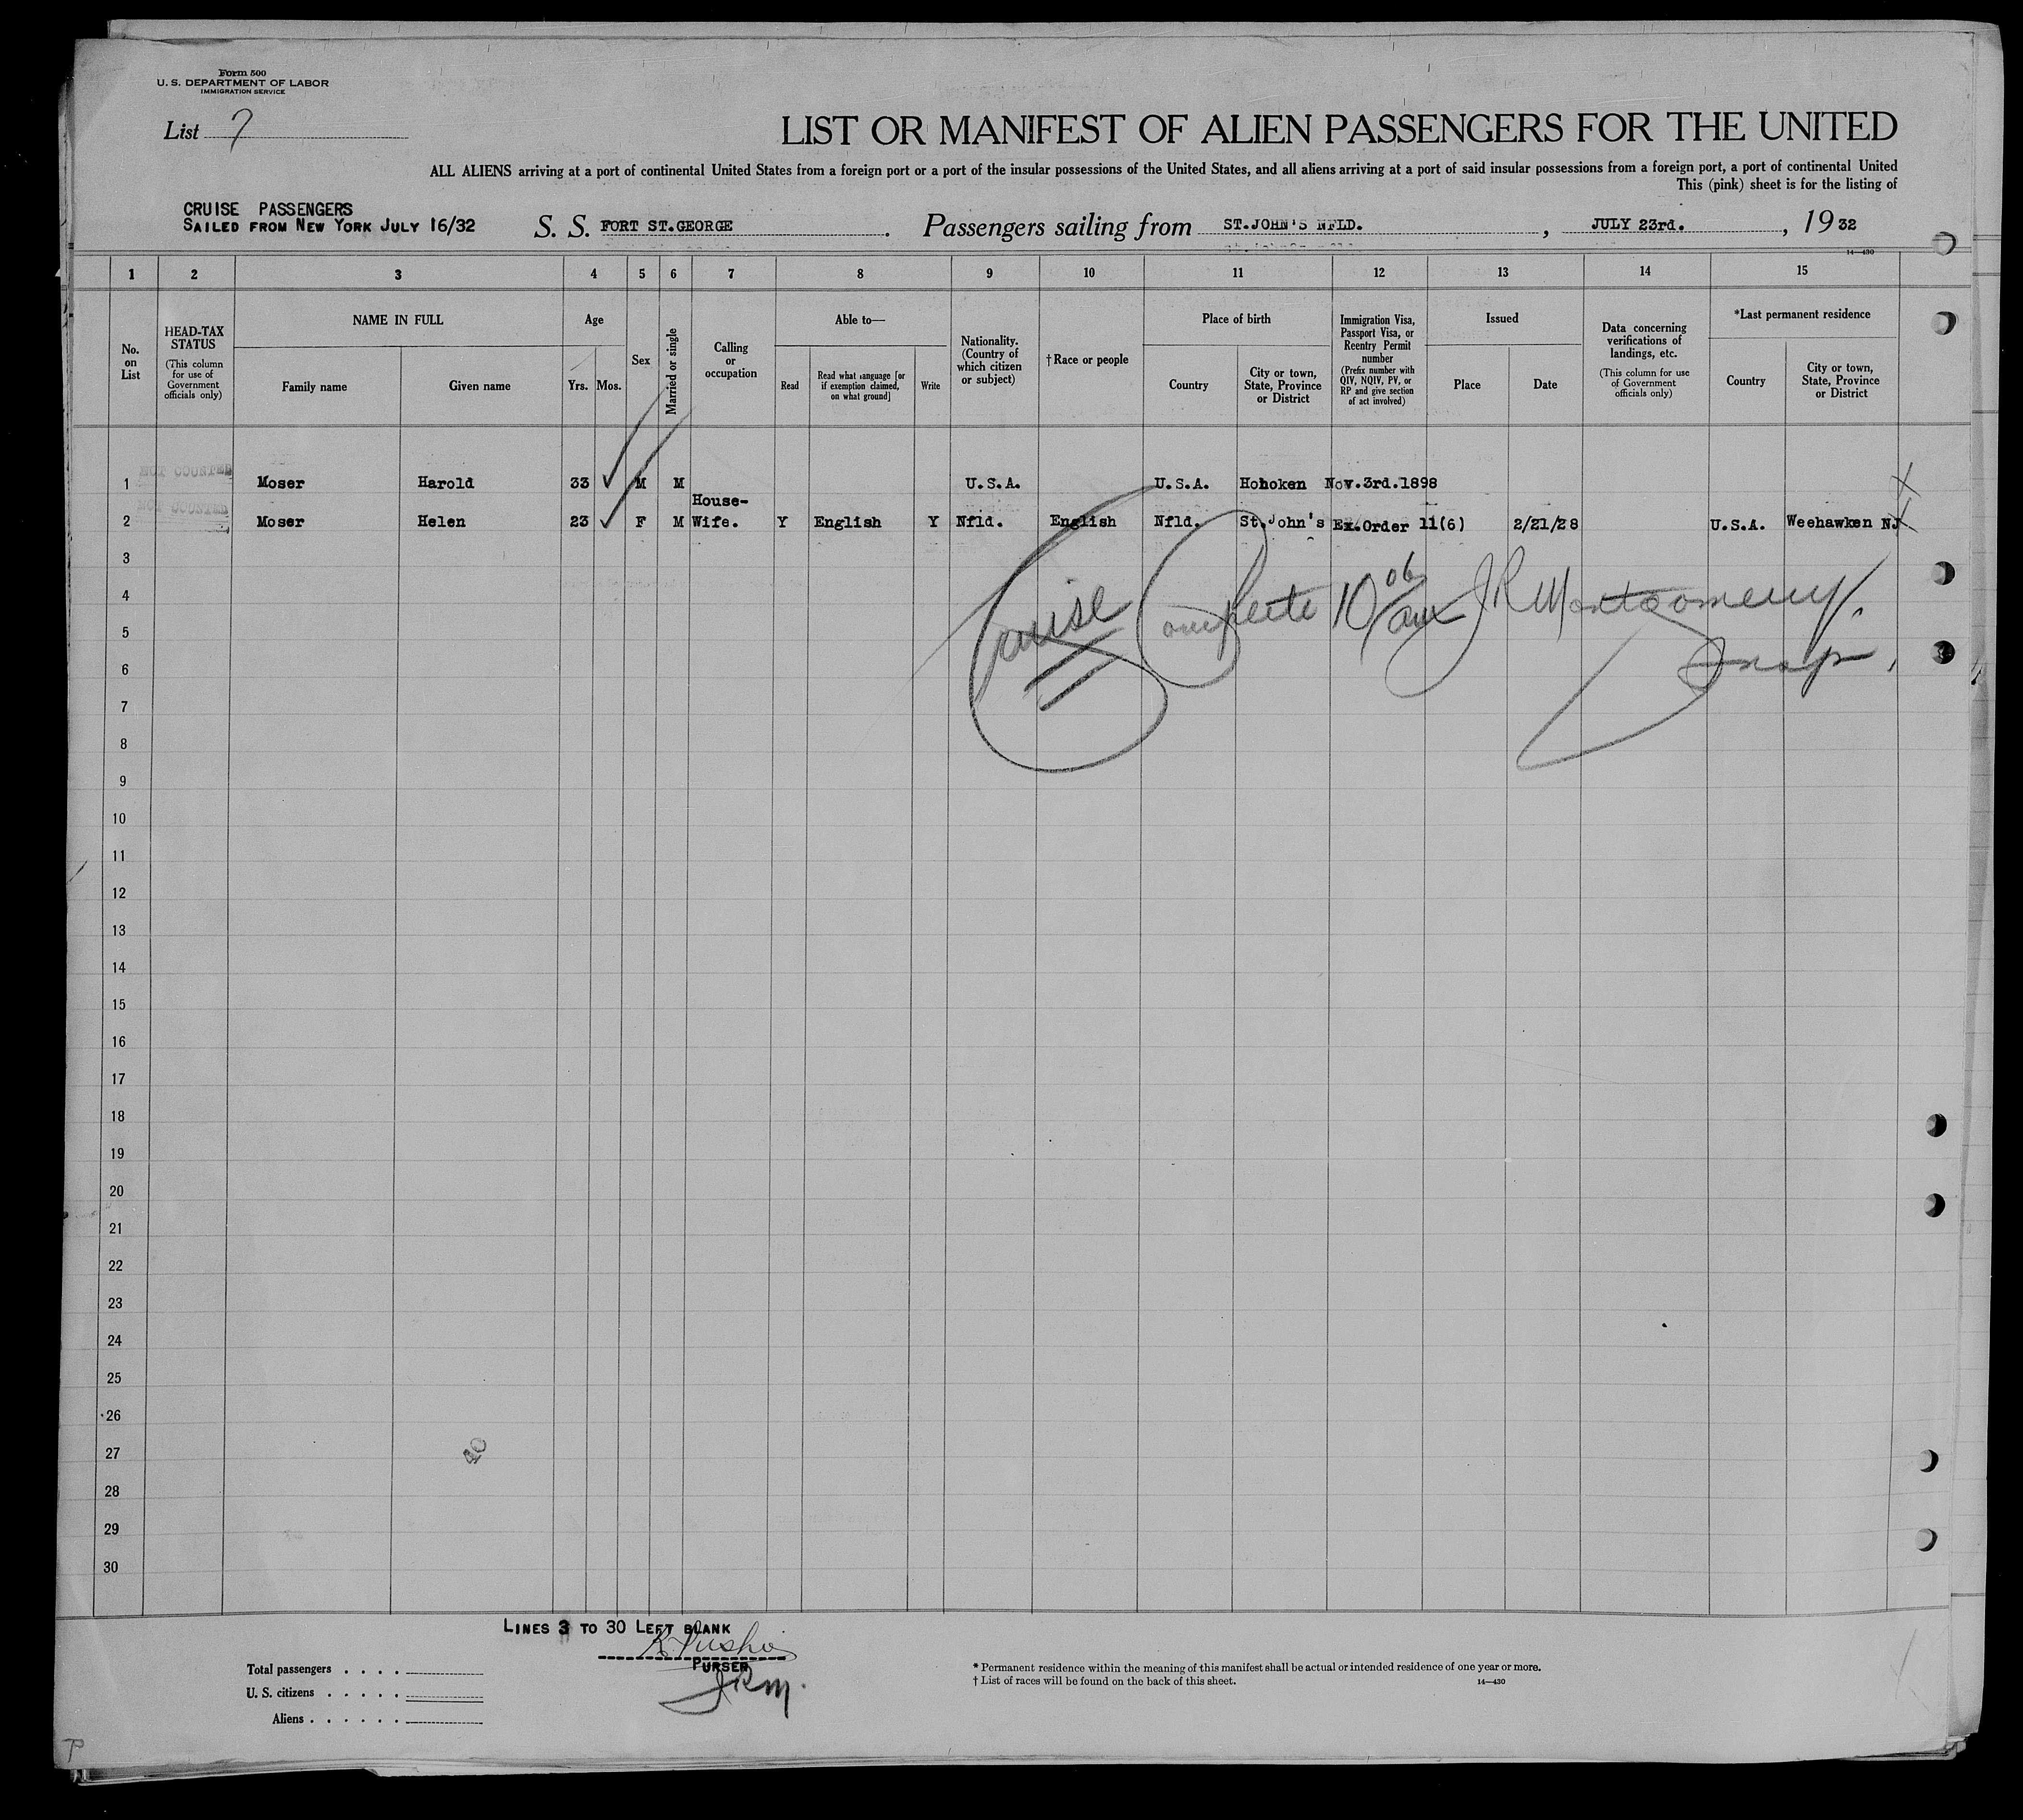 Form 500
U. S. DEPARTMENT OF LABOR
IMMIGRATION SERVICE
List 7
LIST OR MANIFEST OF ALIEN PASSENGERS FOR THE UNITED
ALL ALIENS arriving at a port of continental United States from a foreign port or a port of the insular possessions of the United States, and all aliens arriving at a port of said insular possessions from a foreign port, a port of continental United
This (pink) sheet is for the listing of
CRUISE PASSENGERS
SAILED FROM NEW YORK JULY 16/32
S. S. FORT ST.GEORGE. Passengers sailing from ST.JOHN'S NFLD., JULY 23rd., 1932
14—430
1 2 3 4 5 6 7 8 9 10 11 12 13 14 15
No. on List
HEAD-TAX STATUS
(This column for use of Government officials only)
NAME IN FULL
Family name Given name
Age
Yrs. Mos.
Sex
Married or single
Calling or occupation
Able to—
Read
Read what language [or if exemption claimed, on what ground]
Write
Nationality. (Country of which citizen or subject)
†Race or people
Place of birth
Country
City or town, State, Province or District
Immigration Visa, Passport Visa, or Reentry Permit number
(Prefix number with QIV, NQIV, PV, or RP and give section of act involved)
Issued
Place Date
Data concerning verifications of landings, etc.
(This column for use of Government officials only)
*Last permanent residence
Country
City or town, State, Province or District
1 Moser Harold 33 M M U.S.A. U.S.A. Hohoken Nov.3rd.1898
House-
2 Moser Helen 23 F M Wife. Y English Y Nfld. English Nfld. St.John's Ex.Order 11(6) 2/21/28 U.S.A. Weehawken NJ
Cruise Complete 10 06/am J R Montgomery,
Insp.
3
4
5
6
7
8
9
10
11
12
13
14
15
16
17
18
19
20
21
22
23
24
25
26
27
28
29
30
LINES 3 TO 30 LEFT BLANK
PURSER
JRM.
Total passengers
U. S. citizens
Aliens
* Permanent residence within the meaning of this manifest shall be actual or intended residence of one year or more.
† List of races will be found on the back of this sheet.
14—430